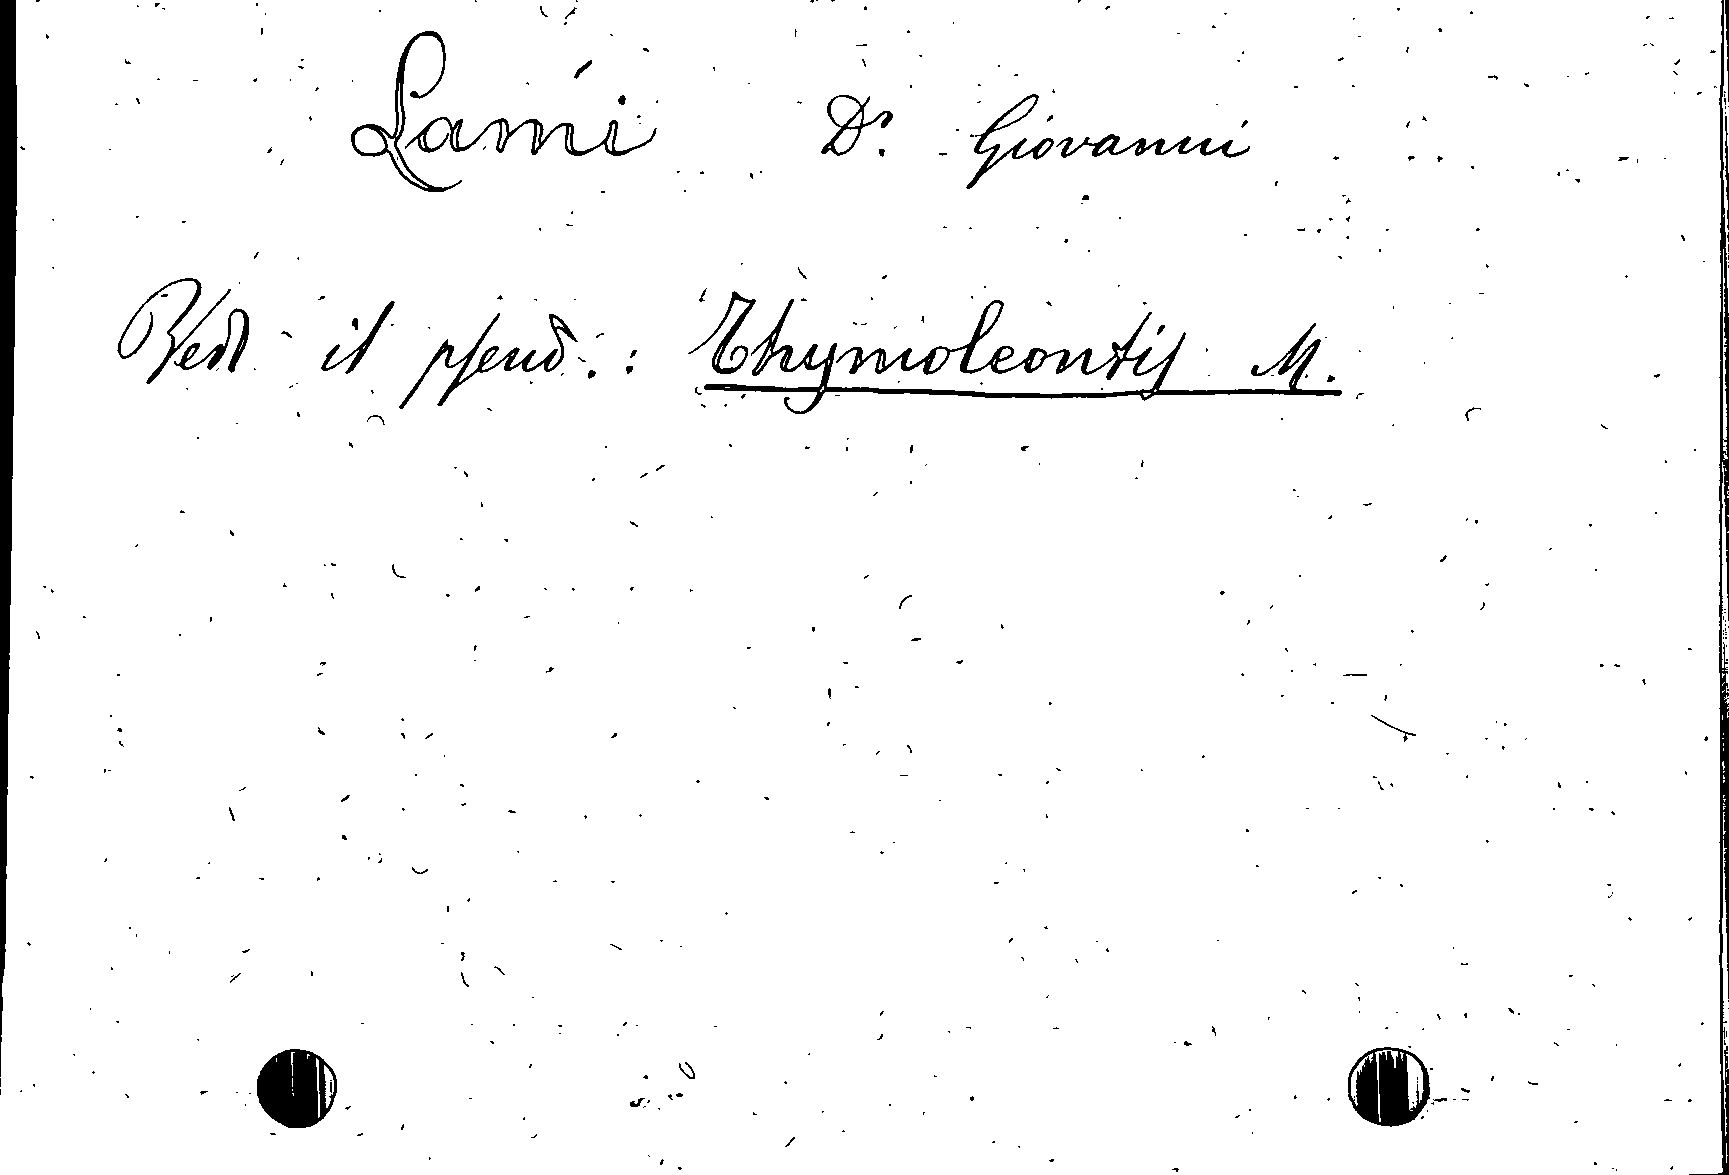 Lami Dr. Giovanni
Vedi il pseud.: Thymoleontis M.